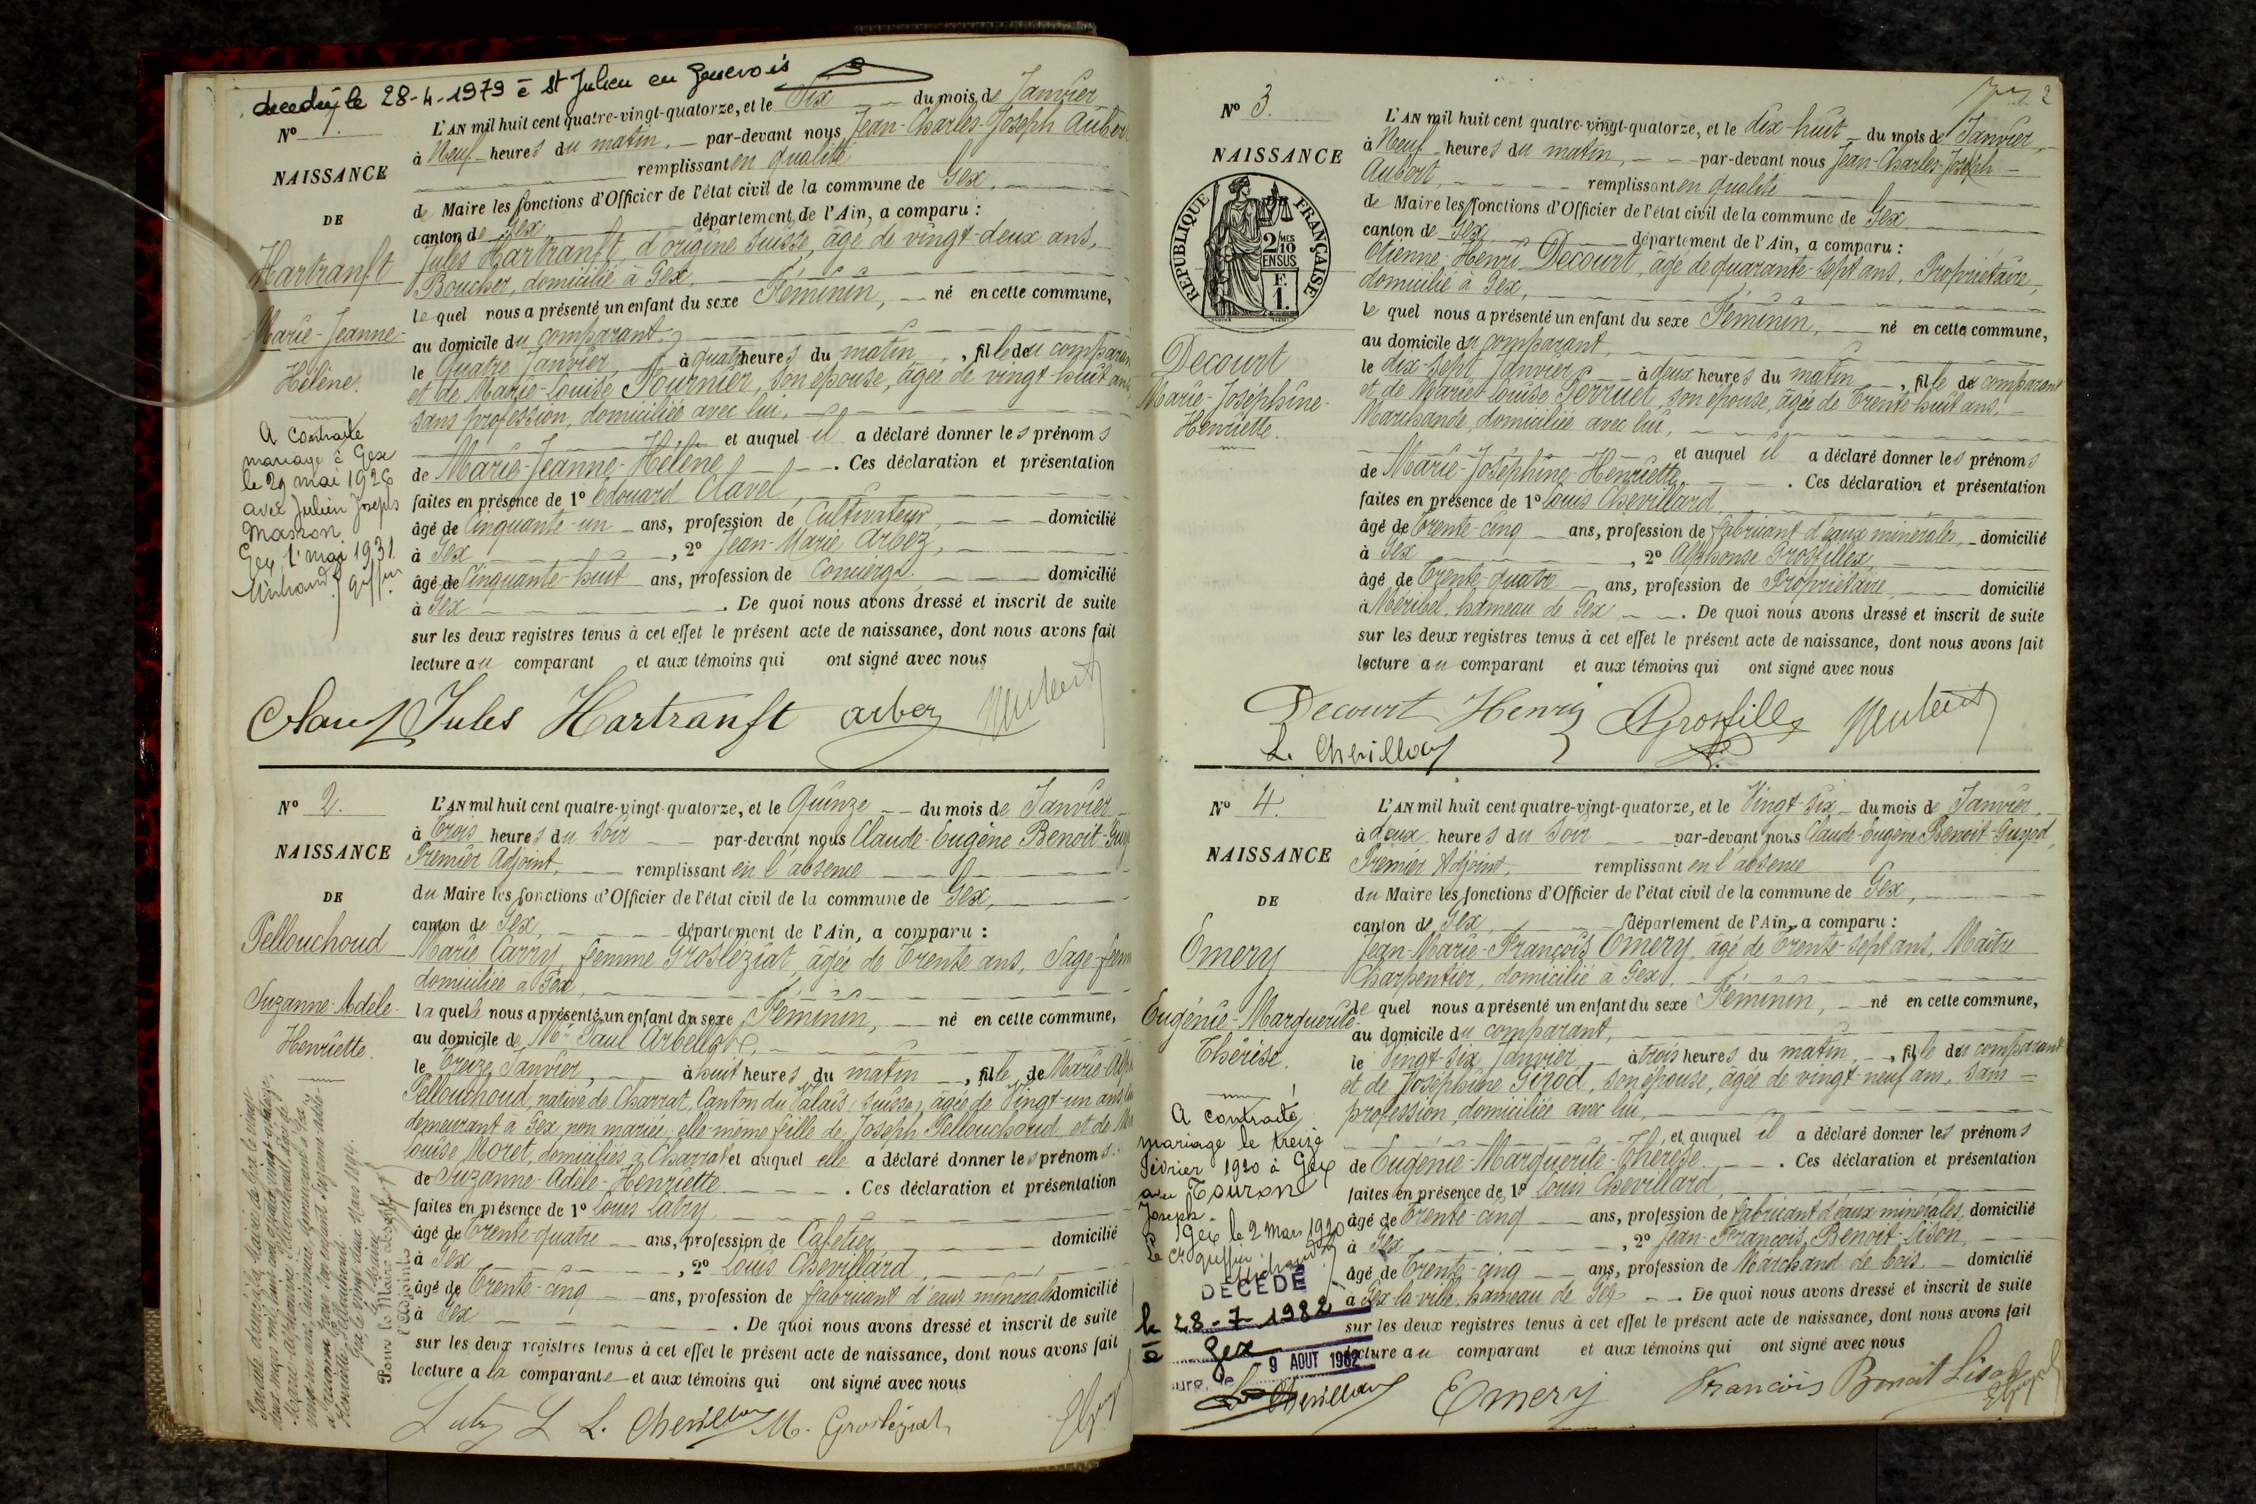 decedéé le 28-4-1979 à St Julien en Genevois
No 1.
NAISSANCE
DE
Hartranft
Marie-Jeanne-
Hélène.
A contracté
mariage à Gex
le 29 mai 1926
avec Julien Joseph
Masson
Gex, 1er mai 1931.
L'AN mil huit cent quatre-vingt-quatorze, et le Six du mois de Janvier
à Neuf heures du matin, par-devant nous Jean-Charles-Joseph Aubert
remplissant en qualité
de Maire les fonctions d'Officier de l'état civil de la commune de Gex,
canton de Gex département de l'Ain, a comparu :
Jules Hartranft, d'origine suisse, âgé de vingt-deux ans,
Boucher, domicilié à Gex,
le quel nous a présenté un enfant du sexe Féminin, né en cette commune,
au domicile du comparant,
le Quatre Janvier, à quatre heures du matin, fille du comparant
et de Marie-Louise Fournier, son épouse, âgée de vingt-huit ans,
sans profession, domiciliée avec lui,
et auquel il a déclaré donner les prénoms
de Marie-Jeanne-Hélène. Ces déclaration et présentation
faites en présence de 1o Edouard Clavel,
âgé de Cinquante-un ans, profession de Cultivateur, domicilié
à Gex, 2o Jean-Marie Arbez,
âgé de Cinquante-huit ans, profession de Concierge, domicilié
à Gex. De quoi nous avons dressé et inscrit de suite
sur les deux registres tenus à cet effet le présent acte de naissance, dont nous avons fait
lecture au comparant et aux témoins qui ont signé avec nous
Clavel Jules Hartranft Arbez
No 2.
NAISSANCE
DE
Pellouchoud
Suzanne-Adèle-
Henriette.
L'AN mil huit cent quatre-vingt-quatorze, et le Quinze du mois de Janvier
à Trois heures du soir par-devant nous Claude-Eugène Benoit-Guyod
Premier Adjoint, remplissant en l'absence
du Maire les fonctions d'Officier de l'état civil de la commune de Gex,
canton de Gex, département de l'Ain, a comparu :
Marie Carry, femme Grosléziat, âgée de Trente ans, Sage-femme
domiciliée à Gex,
la quelle nous a présenté un enfant du sexe Féminin, né en cette commune,
au domicile de Mr Paul
le Treize Janvier, à huit heures du matin, fille de Marie
Pellouchoud, native de Charrat, Canton du Valais (Suisse), âgée de Vingt-un ans,
demeurant à Gex, non mariée; elle-même fille de Joseph Pellouchoud et de
Louise Moret, domiciliés à Charrat et auquel elle a déclaré donner les prénoms
de Suzanne-Adèle-Henriette. Ces déclaration et présentation
faites en présence de 1o Louis Catry
âgé de Trente-quatre ans, profession de Cafetier domicilié
à Gex, 2o Louis Chevillard,
âgé de Trente-cinq ans, profession de fabricant d'eaux minérales domicilié
à Gex. De quoi nous avons dressé et inscrit de suite
sur les deux registres tenus à cet effet le présent acte de naissance, dont nous avons fait
lecture a la comparante et aux témoins qui ont signé avec nous
L. Chevillard M. Grosléziat
2
No 3.
NAISSANCE
RÉPUBLIQUE FRANÇAISE
2/10
EN SUS
F.
1.
Decourt
Marie-Joséphine-
Henriette.
L'AN mil huit cent quatre-vingt-quatorze, et le dix-huit du mois de Janvier,
à Neuf heures du matin, par-devant nous Jean-Charles-Joseph
Aubert, remplissant en qualité
de Maire les fonctions d'Officier de l'état civil de la commune de Gex
canton de Gex, département de l'Ain, a comparu :
Etienne-Henri Decourt, âgé de quarante-sept ans, Propriétaire,
domicilié à Gex,
le quel nous a présenté un enfant du sexe Féminin, né en cette commune,
au domicile du comparant,
le dix-sept Janvier à deux heures du matin, fille du comparant
et de Marie-Louise Perruet, son épouse, âgée de Trente-huit ans,
Marchande, domiciliée avec lui,
et auquel il a déclaré donner les prénoms
de Marie-Joséphine-Henriette. Ces déclaration et présentation
faites en présence de 1o Louis Chevillard
âgé de Trente-cinq ans, profession de fabricant d'eaux minérales, domicilié
à Gex, 2o Alphonse Grosfillex,
âgé de Trente-quatre ans, profession de Propriétaire, domicilié
à Méribel, hameau de Gex. De quoi nous avons dressé et inscrit de suite
sur les deux registres tenus à cet effet le présent acte de naissance, dont nous avons fait
lecture au comparant et aux témoins qui ont signé avec nous
Decourt Henri Grosfillex
L. Chevillard
No 4.
NAISSANCE
DE
Emery
Eugénie-Marguerite-
Thérèse.
A contracté
mariage le treize
février 1920 à Gex
avec Touron
Joseph.
Gex le 2 Mars 1920
Le greffier
DÉCÉDÉ
le 28-7-1982
à Gex
9 AOUT 1982
L'AN mil huit cent quatre-vingt-quatorze, et le Vingt-six du mois de Janvier,
à deux heures du soir par-devant nous Claude-Eugène Benoit-Guyod,
Premier Adjoint, remplissant en l'absence
du Maire les fonctions d'Officier de l'état civil de la commune de Gex,
canton de Gex, département de l'Ain, a comparu :
Jean-Marie-François Emery, âgé de Trente-sept ans, Maître
Charpentier, domicilié à Gex,
le quel nous a présenté un enfant du sexe Féminin, né en cette commune,
au domicile du comparant,
le Vingt-six Janvier, à trois heures du matin, fille du comparant
et de Joséphine Girod, son épouse, âgée de vingt-neuf ans, sans
profession, domiciliée avec lui,
et auquel il a déclaré donner les prénoms
de Eugénie-Marguerite-Thérèse. Ces déclaration et présentation
faites en présence de 1o Louis Chevillard,
âgé de Trente-cinq ans, profession de fabricant d'eaux minérales, domicilié
à Gex, 2o Jean-François Benoit-Lison,
âgé de Trente-cinq ans, profession de Marchand de bois, domicilié
à Gex-la-ville, hameau de Gex. De quoi nous avons dressé et inscrit de suite
sur les deux registres tenus à cet effet le présent acte de naissance, dont nous avons fait
lecture au comparant et aux témoins qui ont signé avec nous
L. Chevillard Emery François Benoit Lison